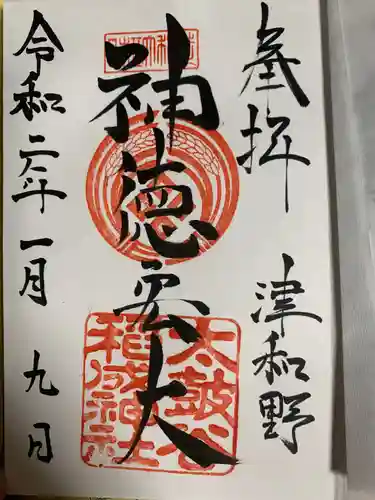 奉拝 津和野
神徳宏大
太皷谷
稲成神社
令和二年一月九日